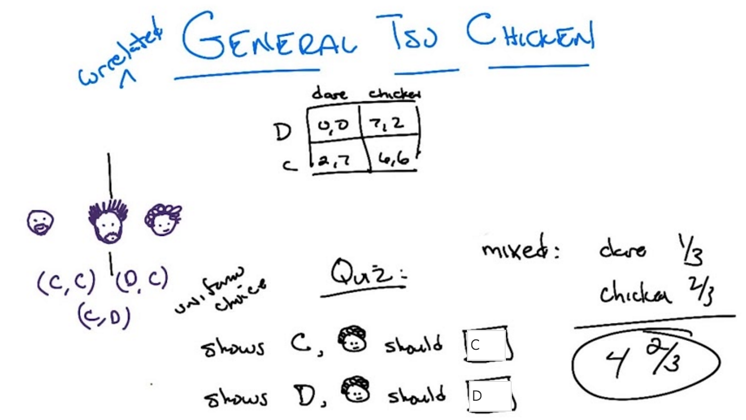 correlated
GENERAL TSO CHICKEN
dare chicken
D 0,0 7,2
C 2,7 6,6
(C,C) (D,C)
(C,D)
uniform
choice
Quiz:
shows C, should C
shows D, should D
mixed: dare 1/3
chicken 2/3
4 2/3